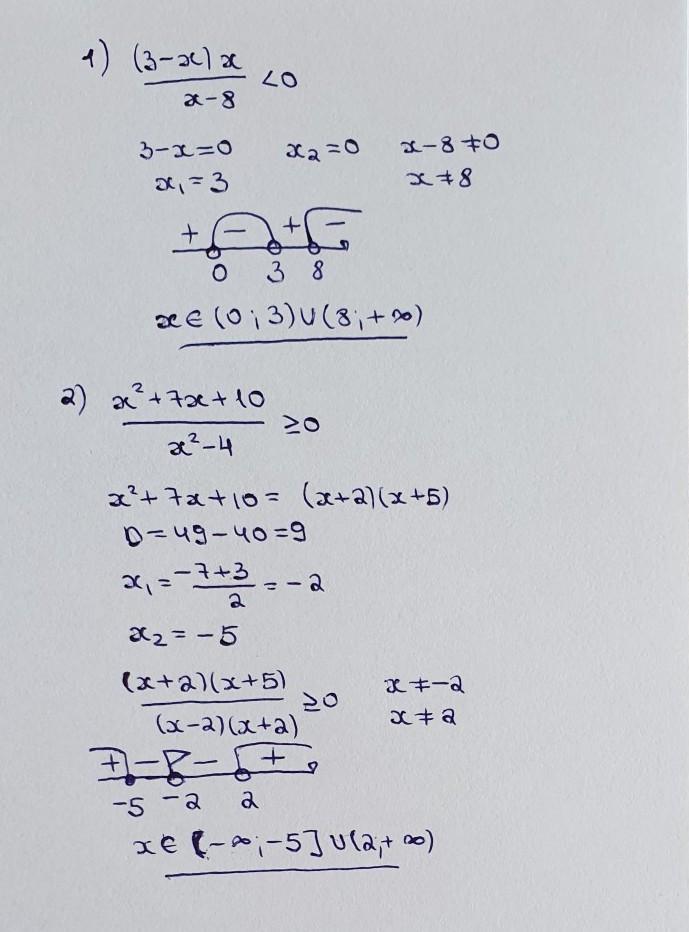 1) (3-x)x / x-8 <0
3-x=0 x₂=0 x-8≠0
x₁=3 x≠8
+ - + -
0 3 8
x∈(0;3)∪(8;+∞)
2) x²+7x+10 / x²-4 ≥0
x²+7x+10=(x+2)(x+5)
D=49-40=9
x₁=-7+3 / 2 =-2
x₂=-5
(x+2)(x+5) / (x-2)(x+2) ≥0 x≠-2
x≠2
+ - - +
-5 -2 2
x∈(-∞;-5]∪(2;+∞)